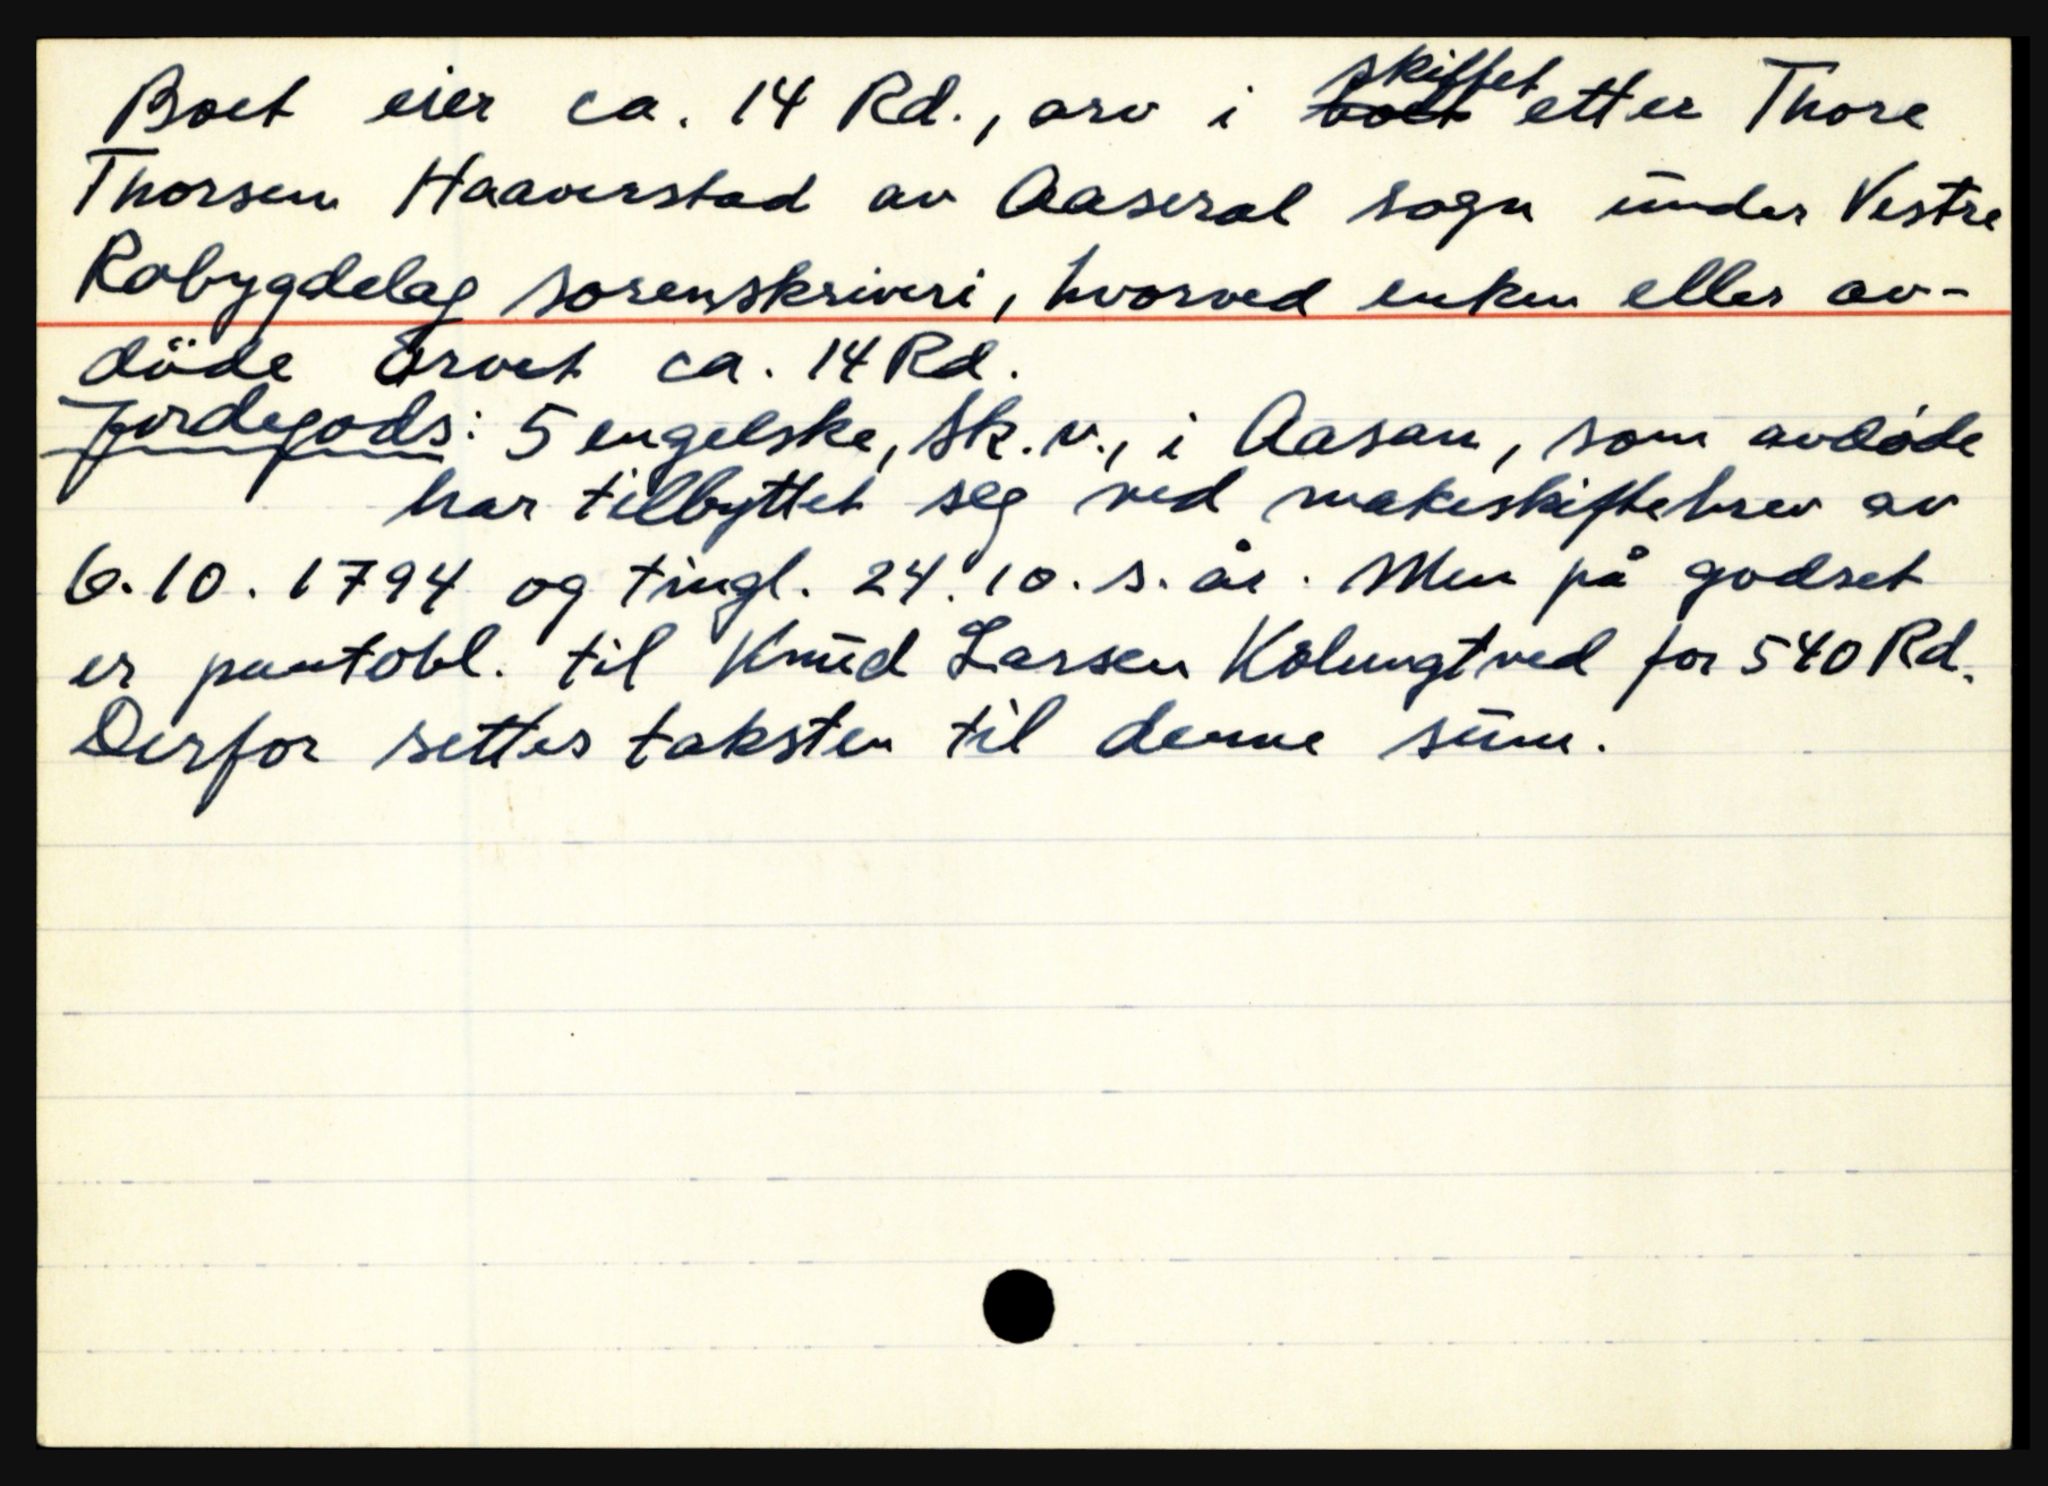 Boet eier ca. 14 Rd., arv i skiftet etter Thore
Thorsen Haaverstad av Aaseral sogn under Vestre
Robygdelag sorenskriveri, hvorved enken eller av-
døde arvet ca. 14 Rd.
Jordegods: 5 engelske, sk. v., i Aasan, som avdøde
har tilbyttet seg ved makeskiftebrev av
6.10.1794 og tingl. 24.10. s. år. Men på godset
er pantobl. til Knud Larsen Kolungtved for 540 Rd.
Derfor settes taksten til denne sum.